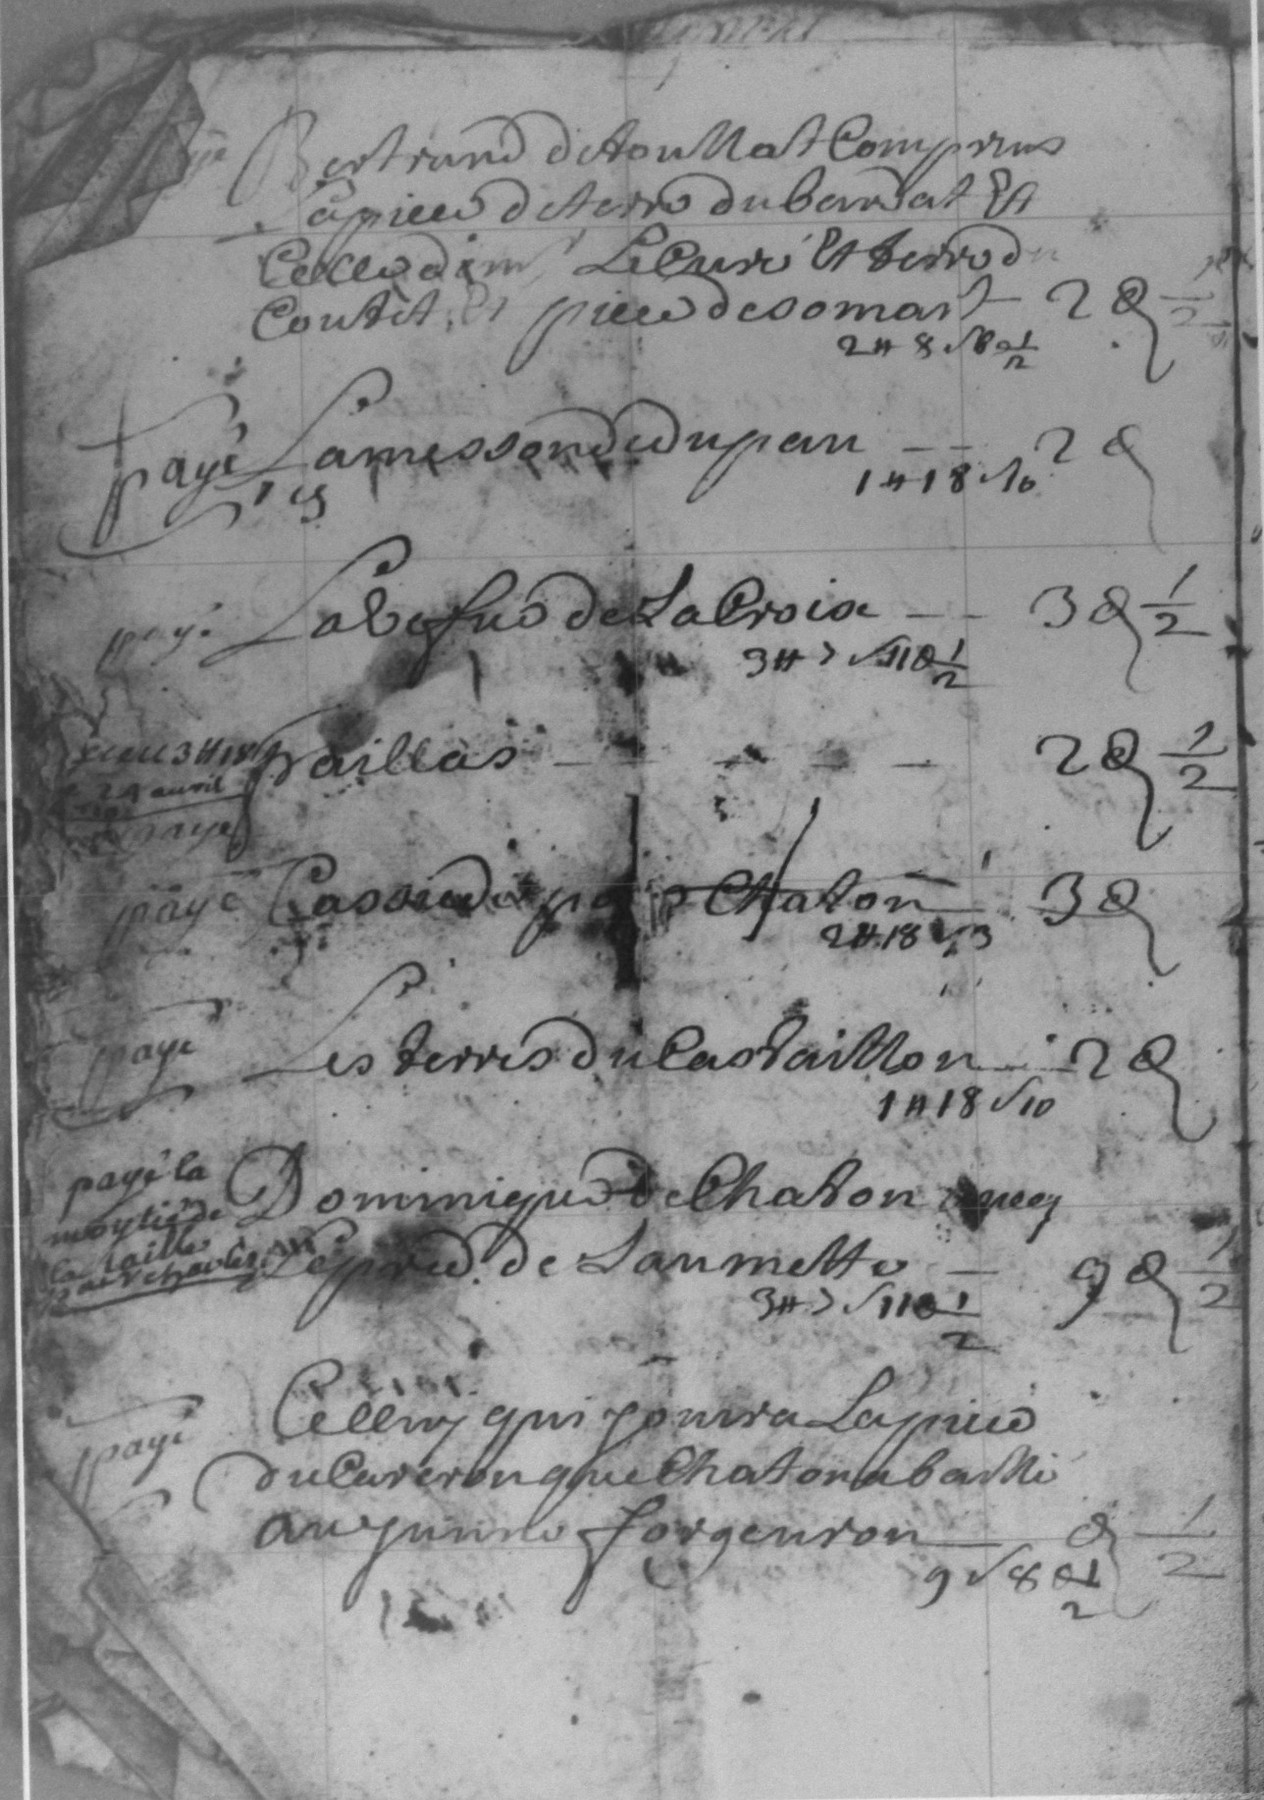 payé Bertrand detoulhat Comprins
La piece deterre dubardat Et
Celle de Le Curé Et terre du
Coutet Et piece desomart — 2 d 1/2
2# 8 s 6 d 1/2
payé La messon de dupau — — 2 d
1# 18 s 10
paye La Vefue de La Croix — — 3 d 1/2
3# 7 s 11 d 1/2
24 avril
paye
Traillas — — — — — 2 d 1/2
payé Chaton — 3 d
2# 18 s 3
payé Les terres du Castaillon — 2 d
1# 18 s 10
payé la
moytié de
la taille
Dominique de Chaton
Le pred de Laumette — 9 d 1/2
3# 7 s 11 d 1/2
payé Celluy qui jouira La piece
du Carreron que Chaton a bailhé
au jeune forgeuron — d 1/2
9 s 8 d 1/2